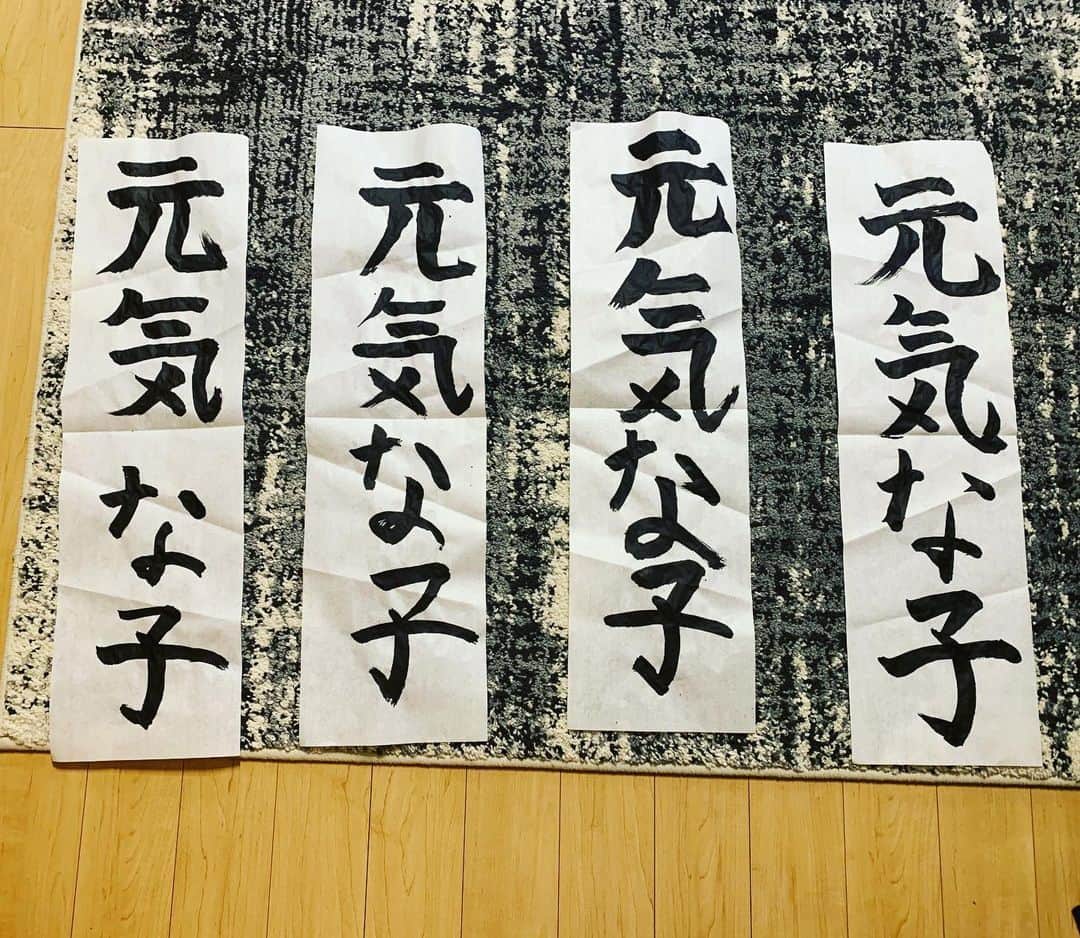 元気な子
元気な子
元気な子
元気な子